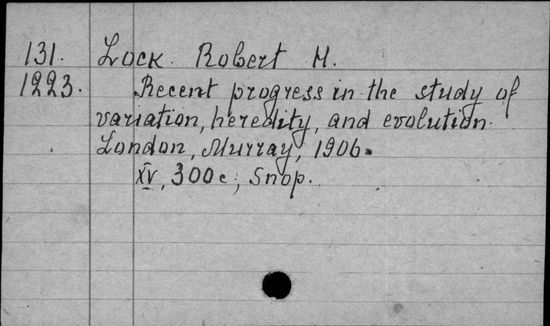 131. Lock Robert H.
1223. Recent progress in the study of
variation, heredity, and evolution.
London, Murray, 1906.
XV, 300 c; 5 пор.